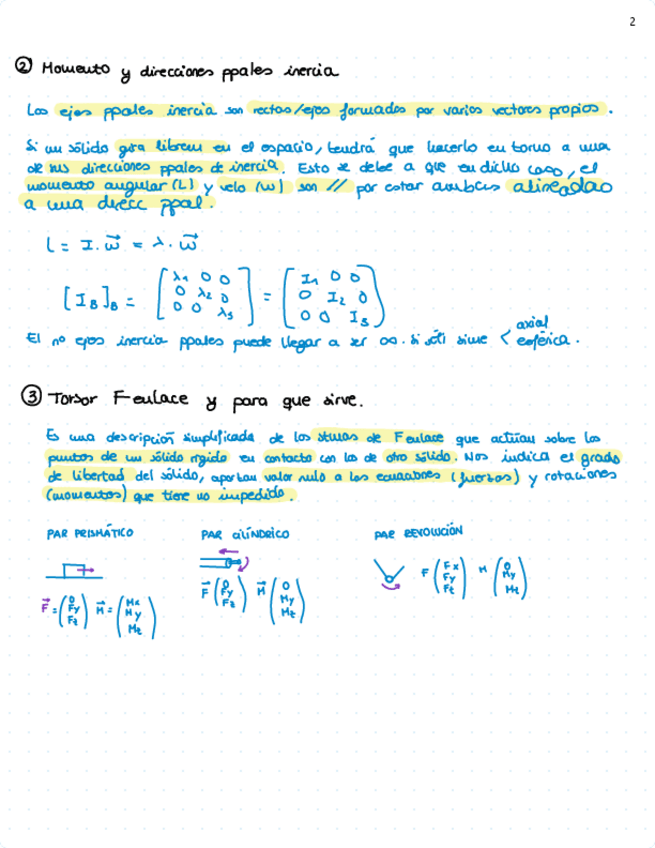 2
② Momento y direcciones ppales inercia
Los ejes ppales inercia son rectas/ejes formados por varios vectores propios.
Si un sólido gira librem en el espacio, tendrá que hacerlo en torno a una
de sus direcciones ppales de inercia. Esto se debe a que en dicho caso, el
momento angular (L) y velo (w) son // por estar ambas alineadas
a una direcc ppal.
L = I. ω⃗ = λ. ω⃗
[I_B]_B = [λ1 0 0; 0 λ2 0; 0 0 λ3] = (I1 0 0; 0 I2 0; 0 0 I3)
El no ejes inercia ppales puede llegar a ser ∞. si sime < axial
esférica.
③ Torsor F enlace y para que sirve.
Es una descripción simplificada de los stmas de F enlace que actúan sobre los
puntos de un sólido rígido en contacto con los de otro sólido. Nos indica el grado
de libertad del sólido, aportan valor nulo a las ecuaciones (fuerzas) y rotaciones
(momentos) que tiene no impedido.
PAR PRISMÁTICO PAR CILÍNDRICO PAR REVOLUCIÓN
F⃗ = (0 Fy Fz) M⃗ = (Mx My Mz) F⃗ (0 Fy Fz) M⃗ (0 My Mz) F (Fx Fy Fz) M (0 My Mz)